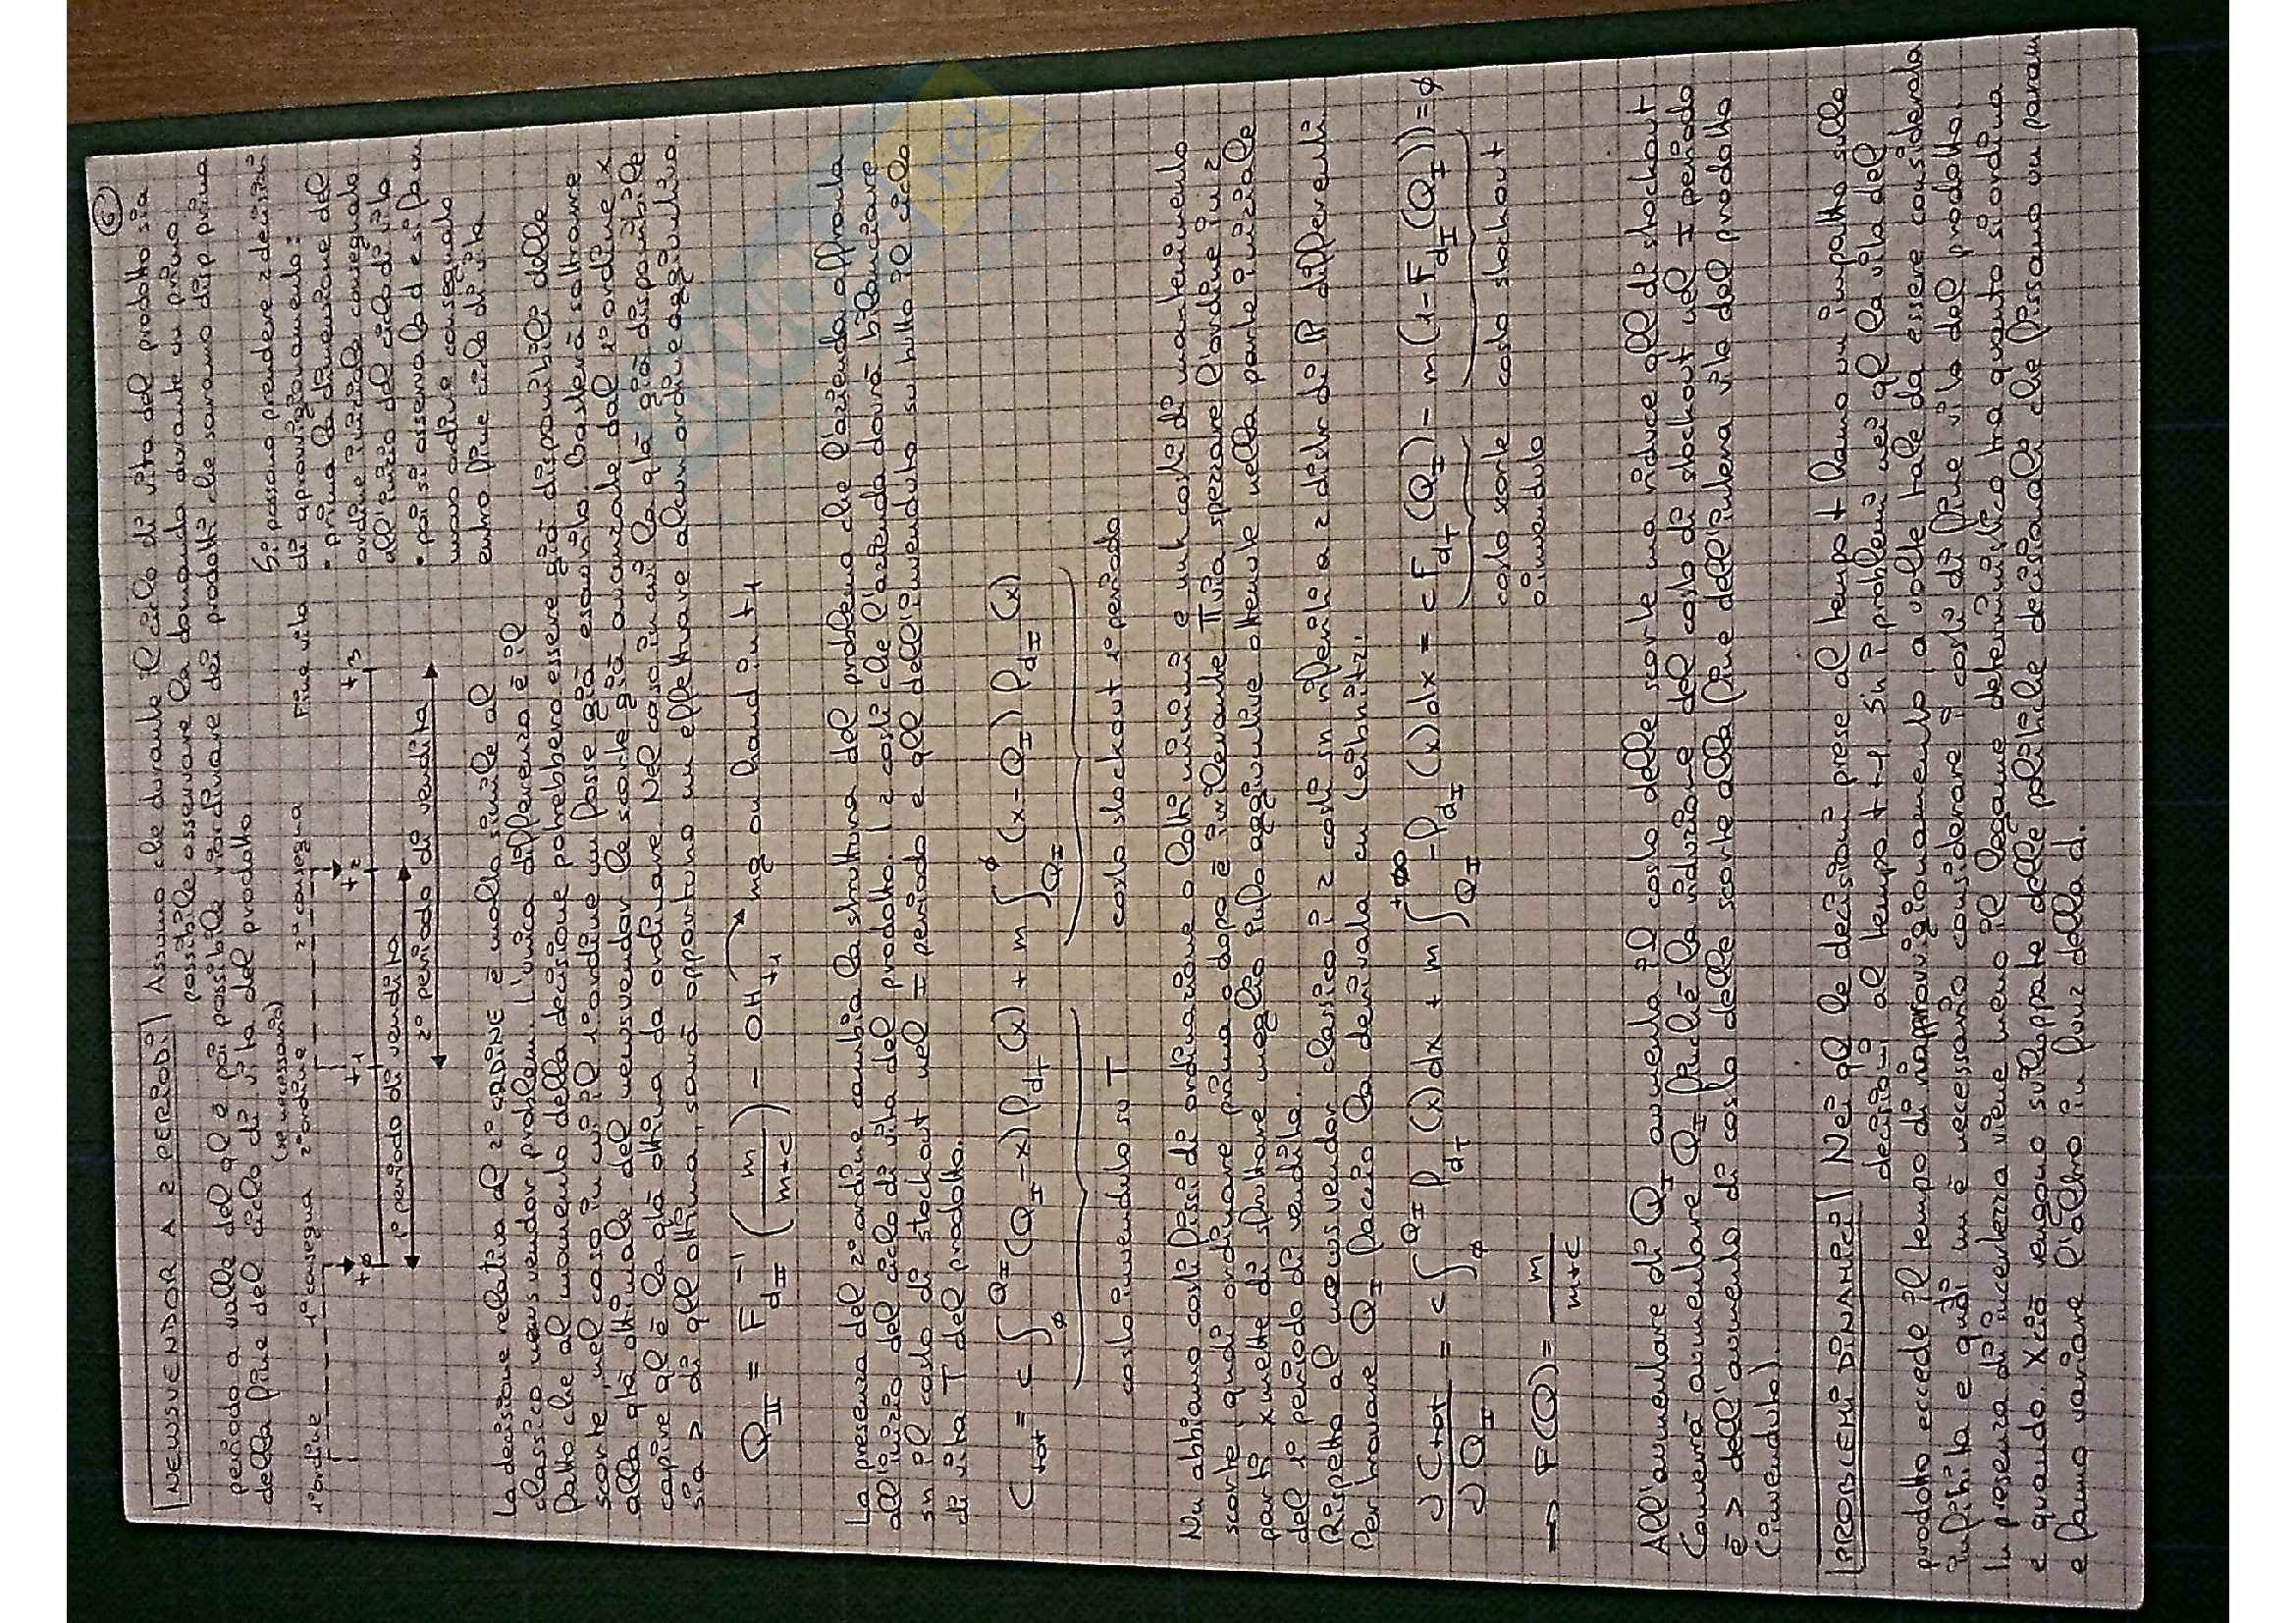 6
NEWSVENDOR A 2 PERIODI Assumo che durante il ciclo di vita del prodotto sia
possibile osservare la domanda durante un primo
periodo a valle del ql è poi possibile riordinare dei prodotti che saranno disp prima
della fine del ciclo di vita del prodotto.
(se necessario)
1° ordine 1° consegna 2° ordine 2° consegna Fine vita
t0 t1 t2 t3
1° periodo di vendita
2° periodo di vendita
Si possono prendere 2 decisioni
di approvvigionamento:
• prima la dimensione del
ordine iniziale consegnato
all'inizio del ciclo di vita
• poi si osserva la d e si fa un
nuovo ordine consegnato
entro fine ciclo di vita
La decisione relativa al 2° ORDINE è molto simile al
classico newsvendor problem. L'unica differenza è il
fatto che al momento della decisione potrebbero essere già disponibili delle
scorte, nel caso in cui il 1° ordine nn fosse già esaurito. Basterà sottrarre
alla qtà ottimale del newsvendor le scorte già avanzate dal 1° ordine x
capire ql è la qtà ottima da ordinare. Nel caso in cui la qtà già disponibile
sia > di qll ottima, sarà opportuno nn effettuare alcun ordine aggiuntivo.
Q_II = F^{-1}_{d_II} (m/(m+c)) - OH_{t1} → mg on hand in t1
La presenza del 2° ordine cambia la struttura del problema che l'azienda affronta
all'inizio del ciclo di vita del prodotto. I 2 costi che l'azienda dovrà bilanciare
sn il costo di stockout nel I periodo e qll dell'invenduto su tutto il ciclo
di vita T del prodotto.
C_tot = c ∫_∅^{Q_I} (Q_I - x) p_{d_T} (x) + m ∫_{Q_I}^∅ (x - Q_I) p_{d_I} (x)
costo invenduto su T costo stockout 1° periodo
Nn abbiamo costi fissi di ordinazione o lotti minimi e nnk costi di mantenimento
scorte, quindi ordinare prima o dopo è irrilevante. T.via spezzare l'ordine in 2
parti xmette di sfruttare meglio info aggiuntive ottenute nella parte iniziale
del 1° periodo di vendita.
Rispetto al newsvendor classico, i 2 costi sn riferiti a 2 distr di P differenti.
Per trovare Q_I faccio la derivata cn Leibnitz.
∂C_tot/∂Q_I = c ∫_∅^{Q_I} p_{d_T} (x) dx + m ∫_{Q_I}^{+∞} -p_{d_I} (x) dx = c F_{d_T} (Q_I) - m (1 - F_{d_I} (Q_I)) = ∅
costo scorte costo stockout
rimanduto
→ F(Q) = m/(m+c)
All'aumentare di Q_I aumenta il costo delle scorte ma riduce qll di stockout.
Converrà aumentare Q_I finché la riduzione del costo di stockout nel I periodo
è > dell'aumento di costo delle scorte alla fine dell'intera vita del prodotto
(invenduto).
PROBLEMI DINAMICI Nei ql le decisioni prese al tempo t hanno un impatto sulle
decisioni al tempo t+1. Sn i problemi nei ql la vita del
prodotto eccede il tempo di riapprovvigionamento; a volte tale da essere considerata
infinita e quindi nn è necessario considerare i costi di fine vita del prodotto.
In presenza di incertezza viene meno il legame deterministico tra quanto si ordina
e quando. Xciò vengono sviluppate delle politiche decisionali che fissano un param
e fanno variare l'altro in funz della d.